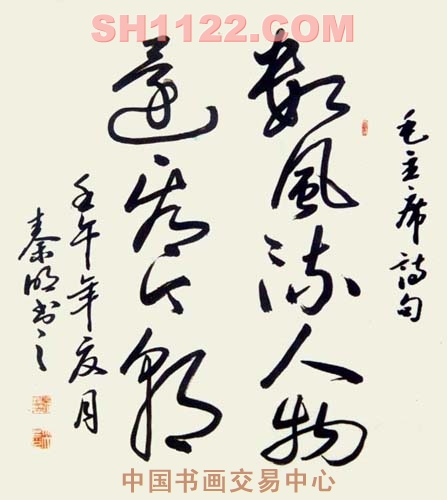 SH1122.COM
毛主席詩句
數風流人物
還看今朝
壬午年夏月
秦明書之
中国书画交易中心